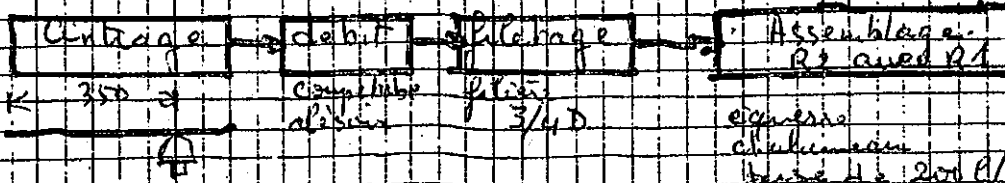 Cintrage
débit
filetage
Assemblage.
R2 avec R1
350
coupe tube
alésoir
filière
3/4 D
équerre
chalumeau
buse de 200 l/